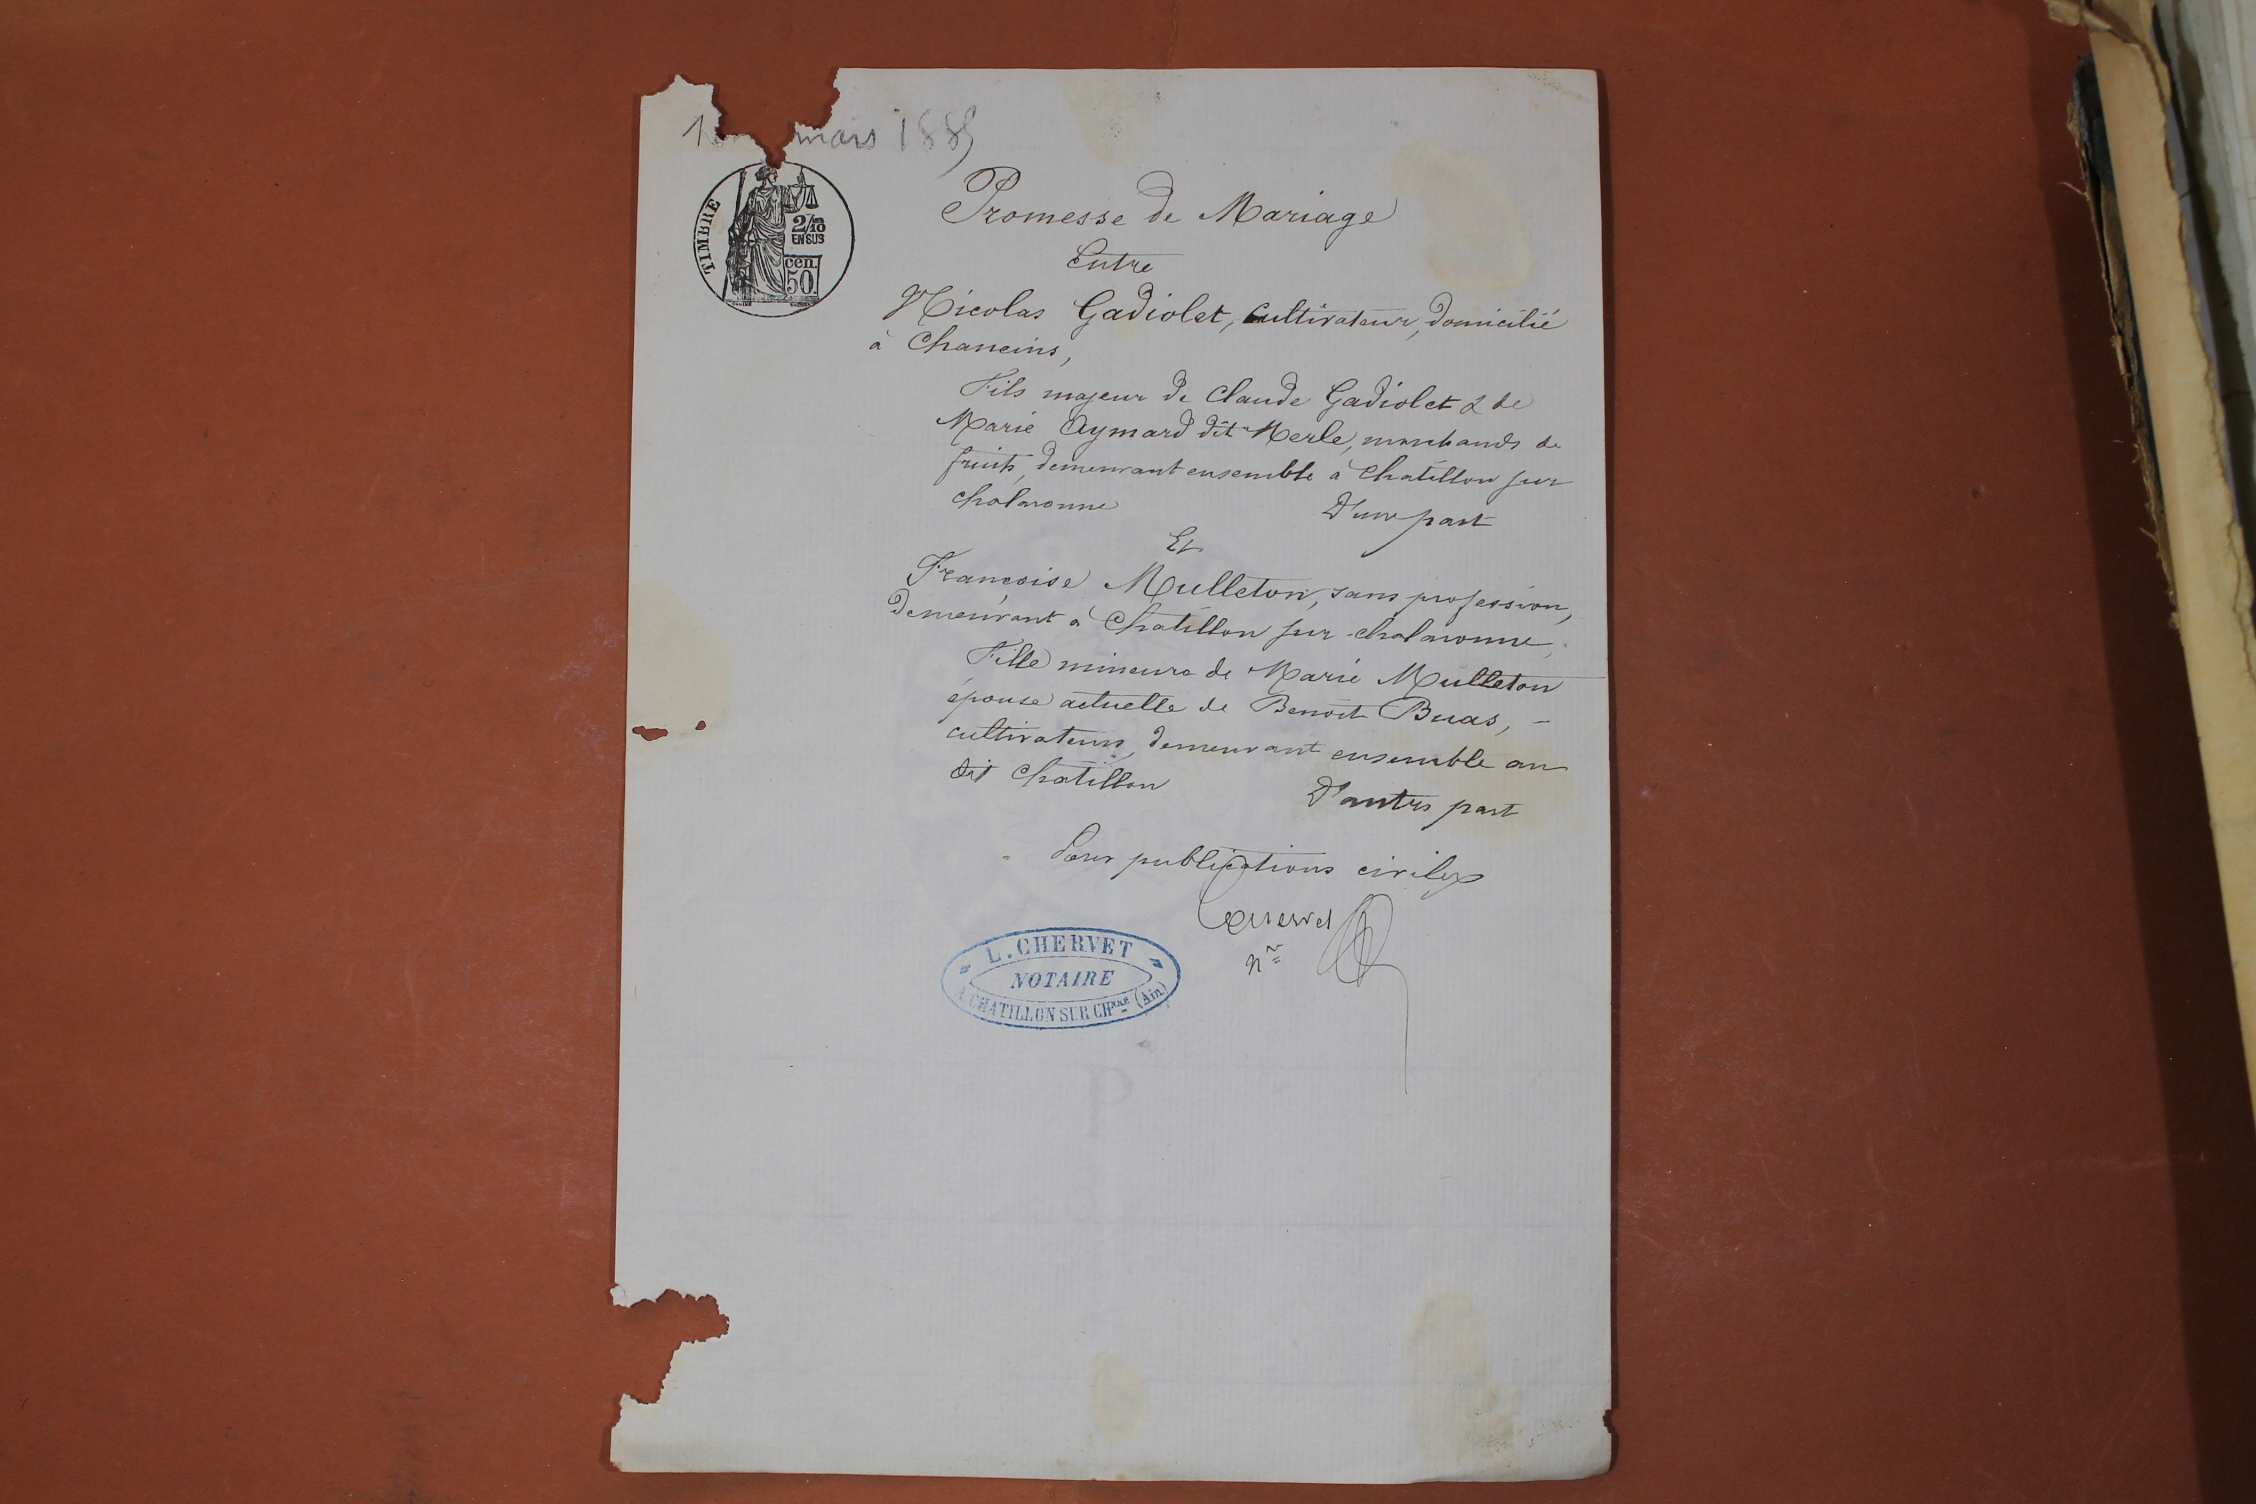 mars 188
TIMBRE
2/10
EN SUS
cen.
50.
Promesse de Mariage
Entre
Nicolas Gadiolet, cultivateur, domicilié
à Chaneins,
Fils majeur de Claude Gadiolet & de
Marie Aymard dit Merle, marchands de
fruits, demeurant ensemble à Chatillon sur
Chalaronne D'une part
Et
Françoise Mulleton, sans profession,
demeurant à Chatillon sur Chalaronne,
Fille mineure de Marie Mulleton
épouse actuelle de Benoit Buas, –
cultivateurs, demeurant ensemble au
dit Chatillon D'autre part
Pour publications civiles
Chervet
Nre
L. CHERVET
NOTAIRE
A CHATILLON SUR CHne (Ain)